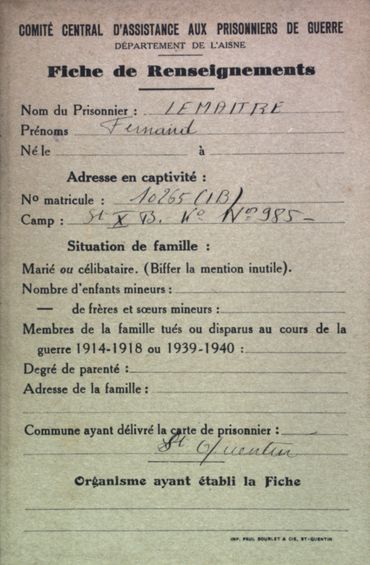 COMITÉ CENTRAL D'ASSISTANCE AUX PRISONNIERS DE GUERRE
DÉPARTEMENT DE L'AISNE
Fiche de Renseignements
Nom du Prisonnier : LEMAITRE
Prénoms Fernand
Né le à
Adresse en captivité :
No matricule : 10265 (IB)
Camp : St X B. Ko No 985
Situation de famille :
Marié ou célibataire. (Biffer la mention inutile).
Nombre d'enfants mineurs :
— de frères et sœurs mineurs :
Membres de la famille tués ou disparus au cours de la
guerre 1914-1918 ou 1939-1940 :
Degré de parenté :
Adresse de la famille :
Commune ayant délivré la carte de prisonnier :
St Quentin
Organisme ayant établi la Fiche
IMP. PAUL BOURLET & CIE, ST-QUENTIN